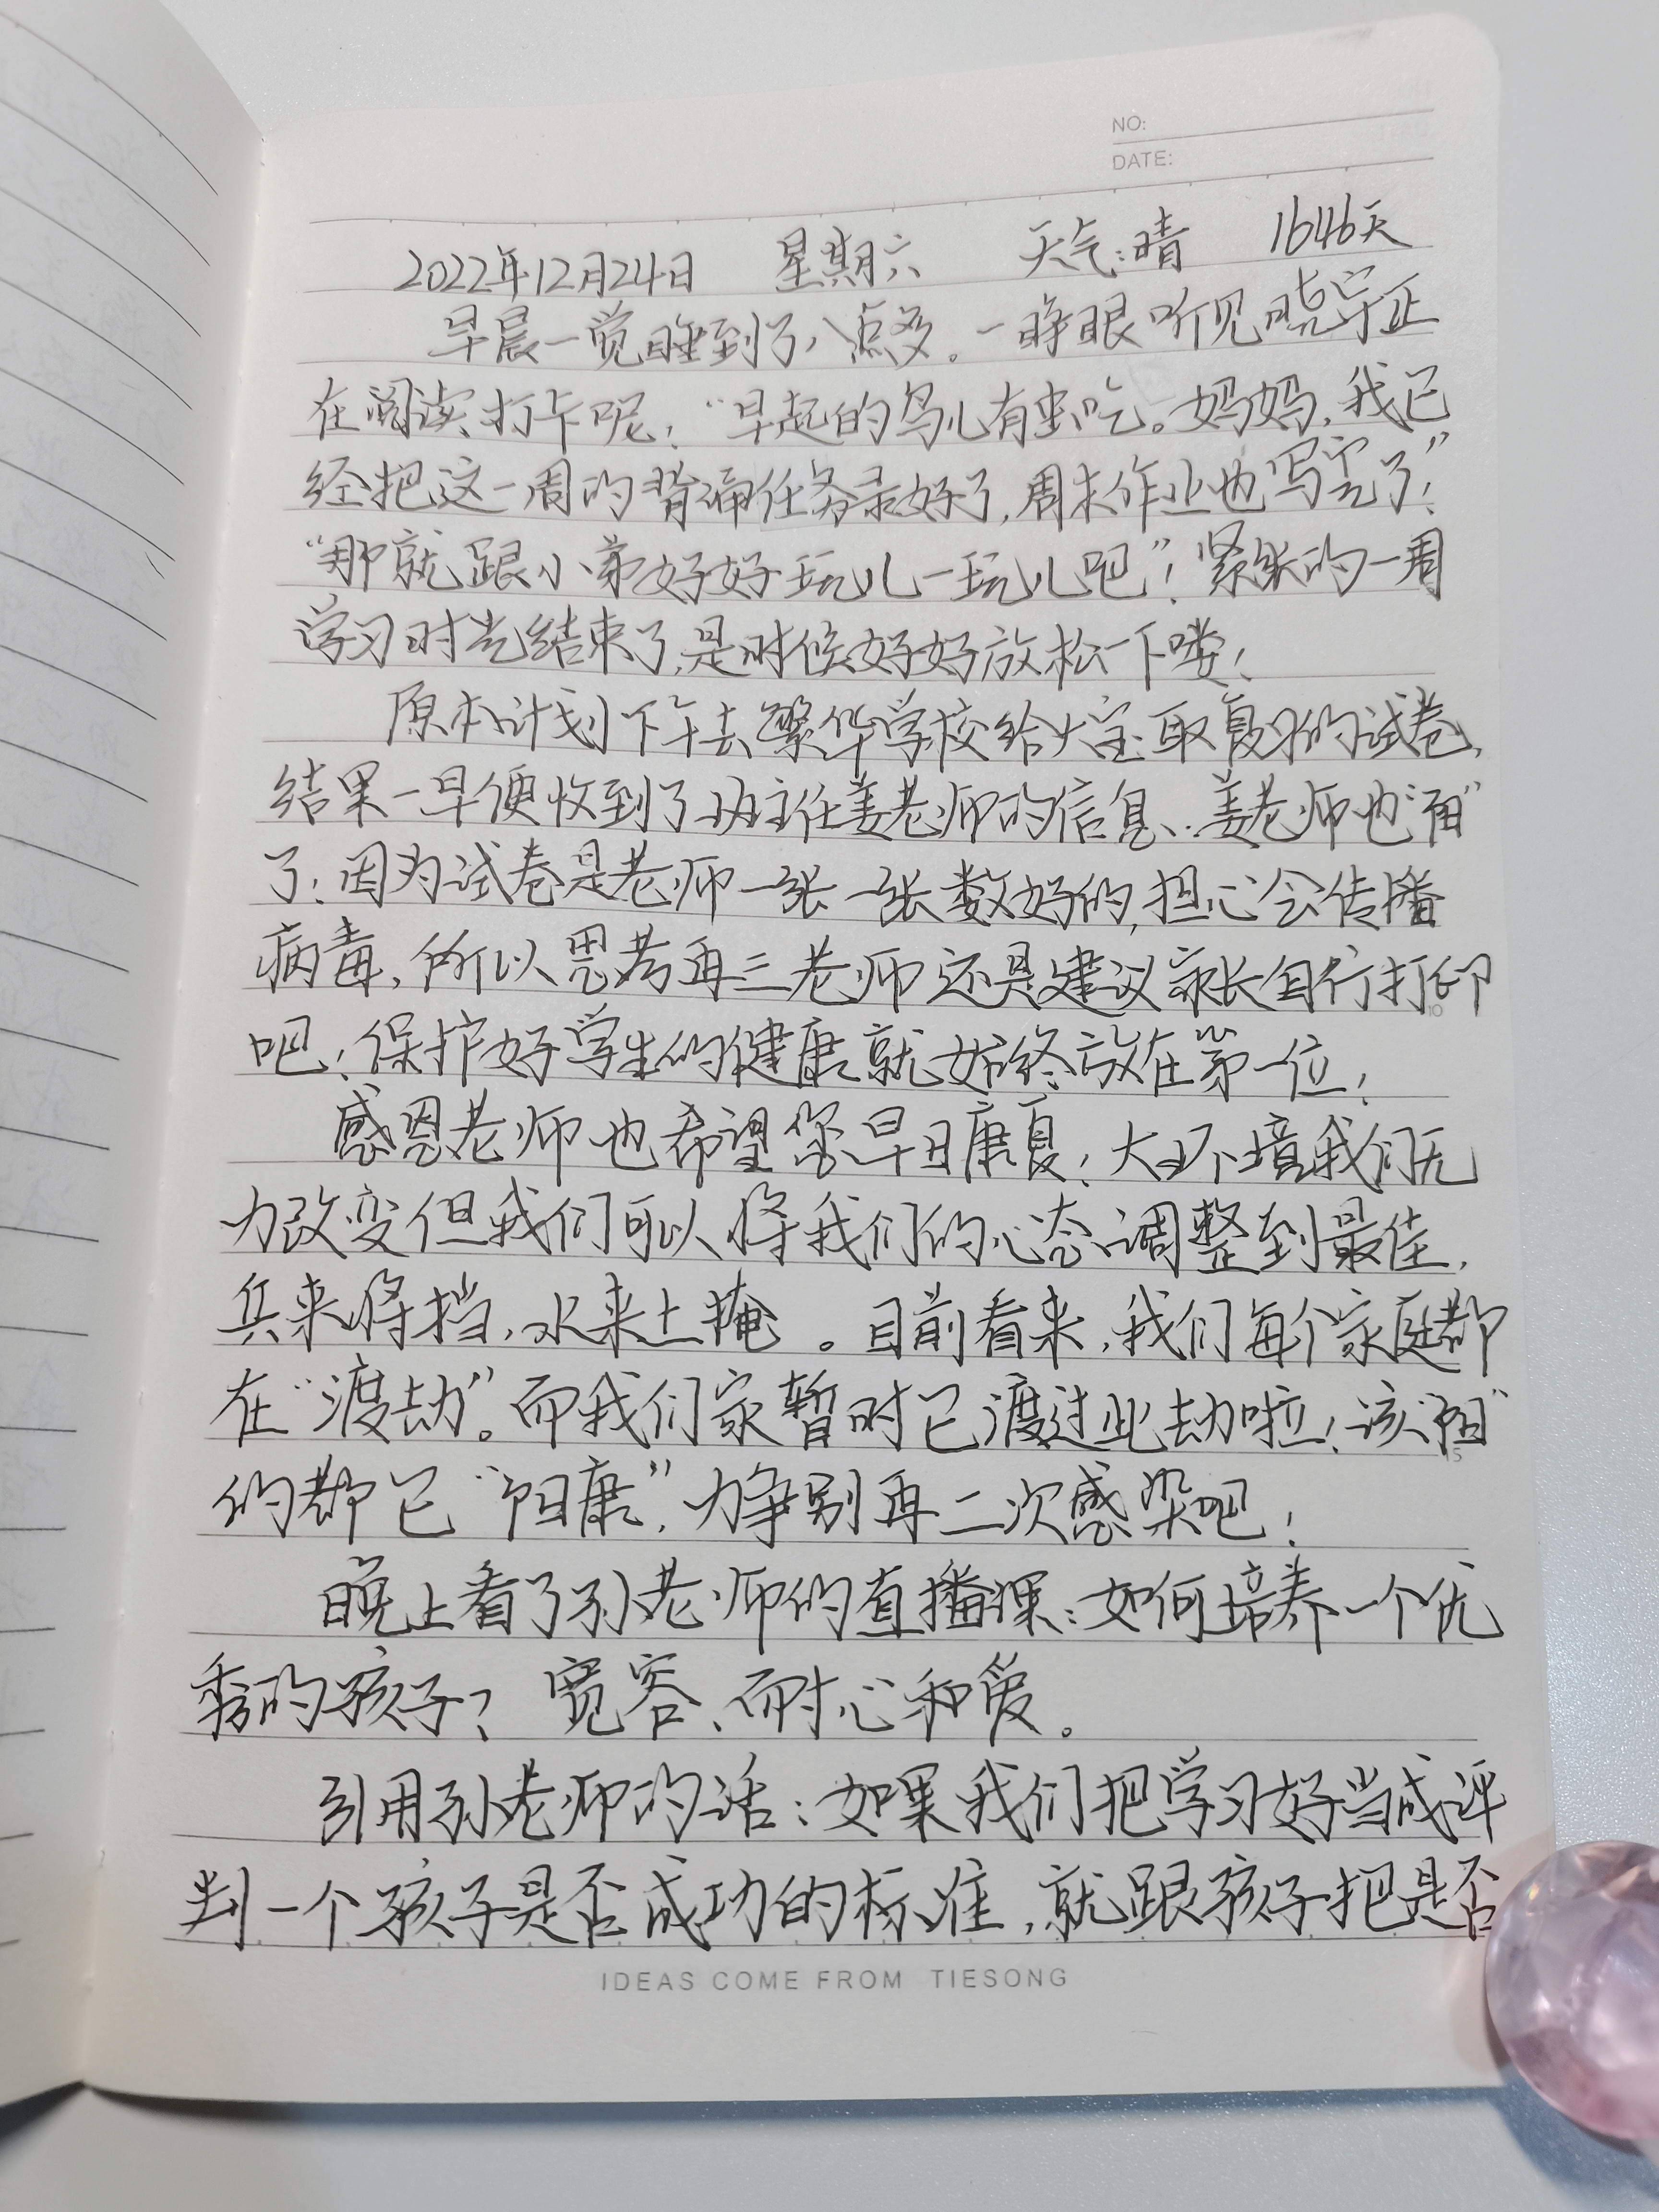 NO:
DATE:
2022年12月24日 星期六 天气:晴 1646天
早晨一觉睡到了八点多。一睁眼听见晓宇正
在阅读打卡呢!“早起的鸟儿有虫吃。妈妈,我已
经把这一周的背诵任务录好了,周末作业也写完了!”
“那就跟小弟好好玩儿一玩儿吧”!紧张的一周
学习时光结束了,是时候好好放松一下喽!
原本计划下午去繁华学校给大宝取复习的试卷,
结果一早便收到了班主任姜老师的信息、姜老师也“阳”
了!因为试卷是老师一张一张数好的,担心会传播
病毒,所以思考再三老师还是建议家长自行打印
吧!保护好学生的健康就始终放在第一位!
感恩老师也希望您早日康复!大环境我们无
力改变但我们可以将我们的心态调整到最佳,
兵来将挡,水来土掩。目前看来,我们每个家庭都
在“渡劫”。而我们家暂时已渡过此劫啦!该“阳”
的都已“阳康”,力争别再二次感染吧!
晚上看了孙老师的直播课:如何培养一个优
秀的孩子?宽容、耐心和爱。
引用孙老师的话:如果我们把学习好当成评
判一个孩子是否成功的标准,就跟孩子把是否
IDEAS COME FROM TIESONG